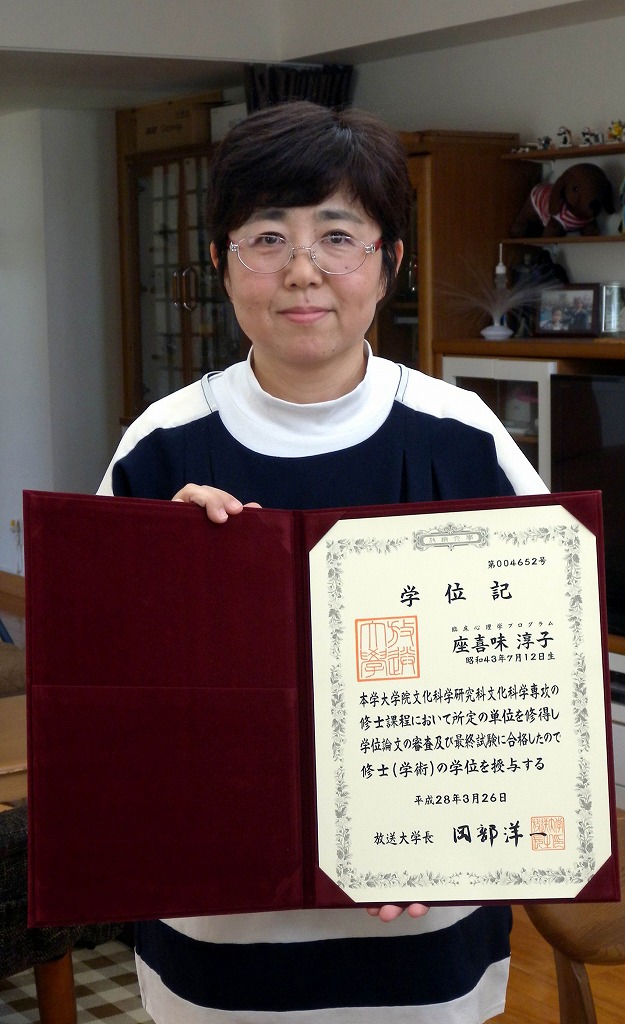 放送大學
第004652号
学位記
臨床心理学プログラム
座喜味 淳子
昭和43年7月12日生
放送大學
本学大学院文化科学研究科文化科学専攻の
修士課程において所定の単位を修得し
学位論文の審査及び最終試験に合格したので
修士(学術)の学位を授与する
平成28年3月26日
放送大学長 岡部洋一